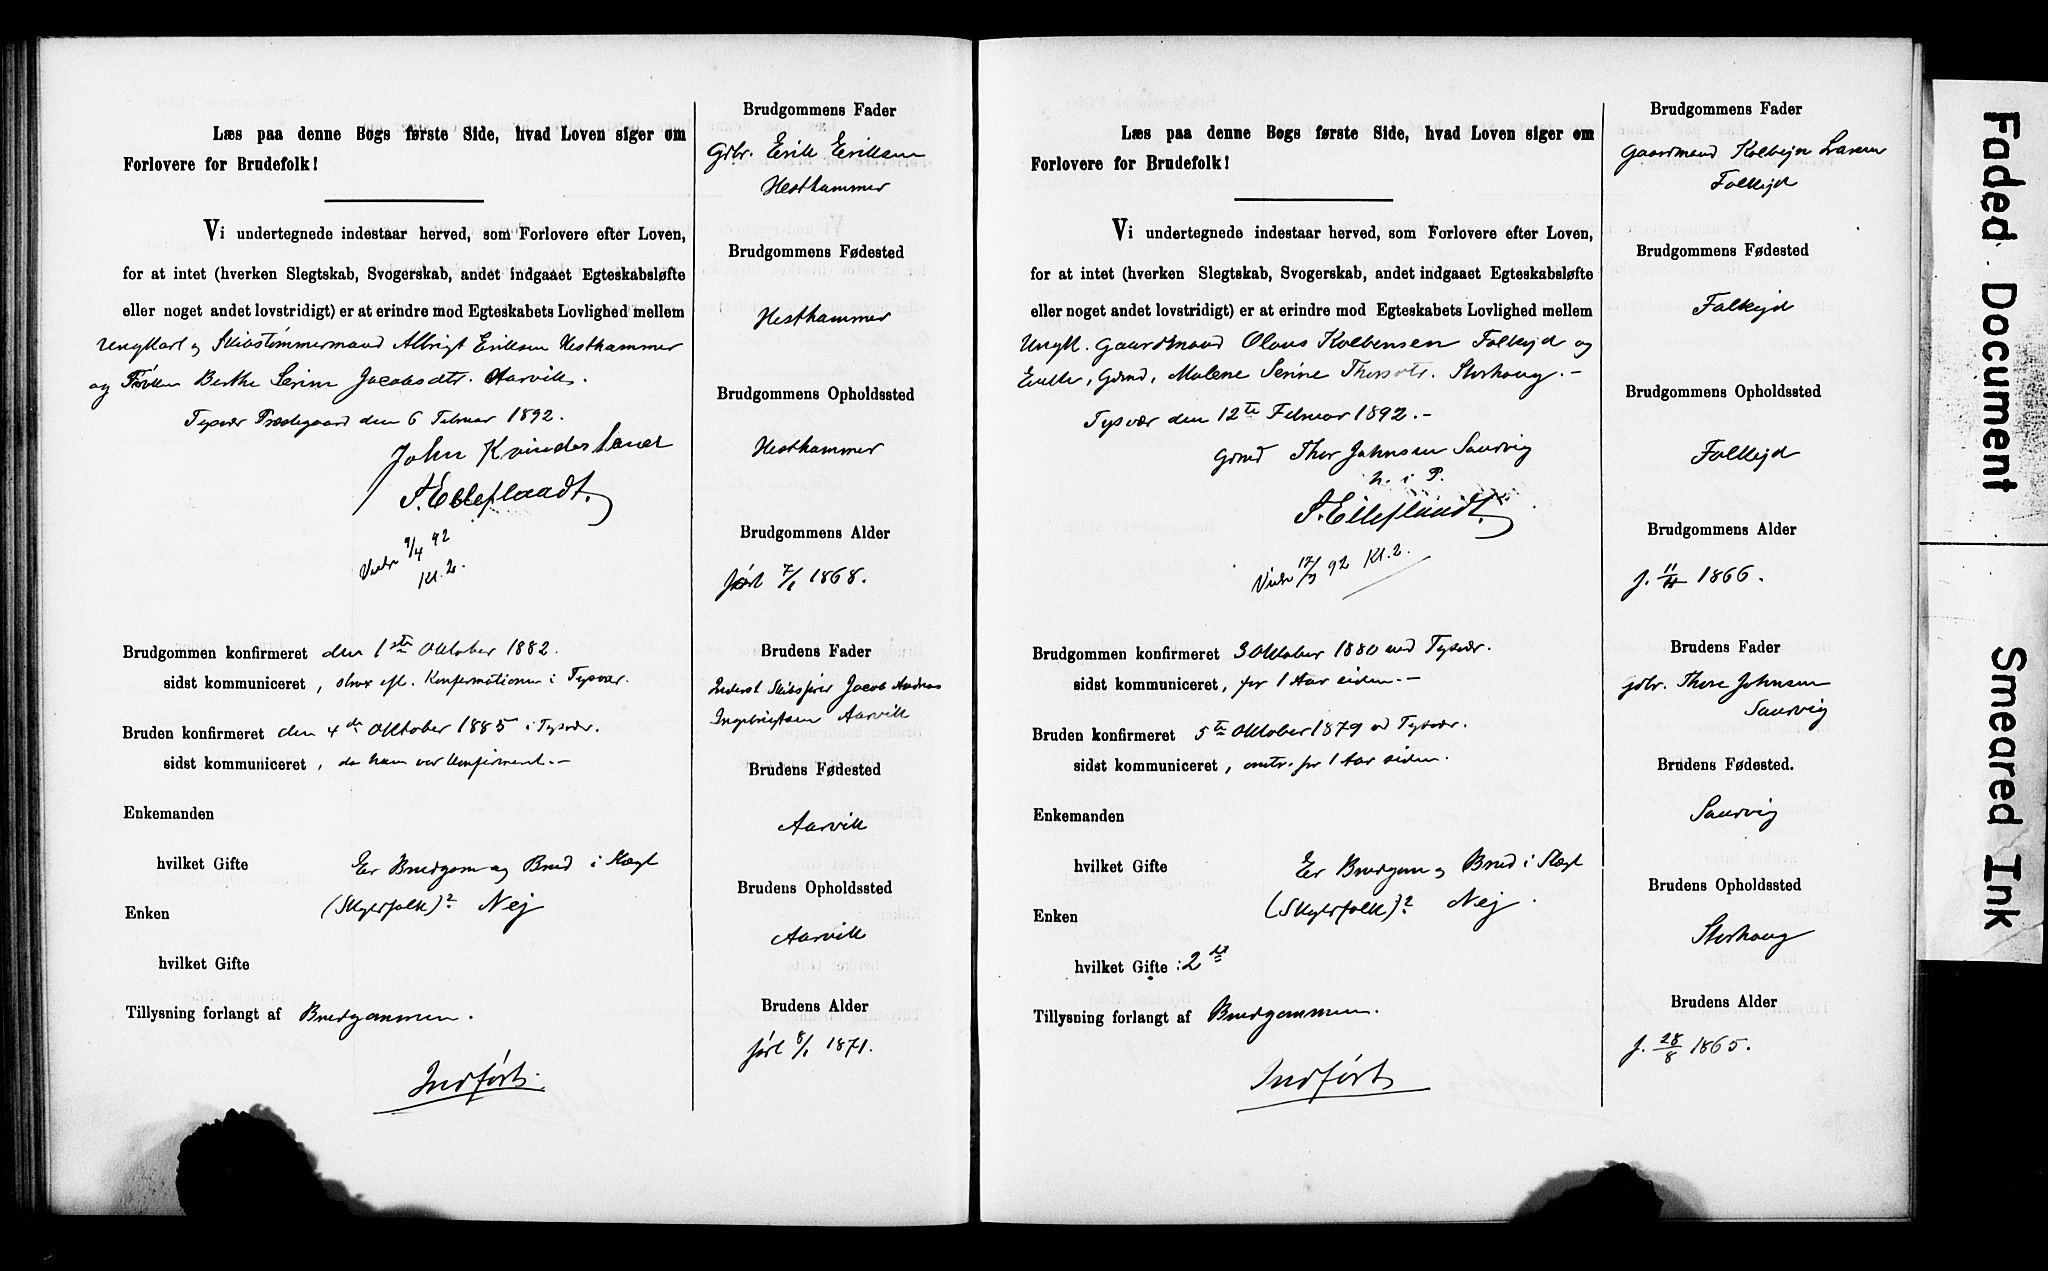 Læs paa denne Bogs første Side, hvad Loven siger om
Forlovere for Brudefolk!
Vi undertegnede indestaar herved, som Forlovere efter Loven,
for at intet (hverken Slegtskab, Svogerskab, andet indgaaet Egteskabsløfte
eller noget andet lovstridigt) er at erindre mod Egteskabets Lovlighed mellem
Ungkarl og Skibstømmermand Albrigt Eriksen Hesthammer
og Frøken Berthe Serine Jacobsdtr. Aarvik.
Tysvær Præstegaard den 6 Februar 1892.
John Kvindesland
S. Elleflaadt.
Viede 9/4 92
Kl. 2.
Brudgommen konfirmeret den 1ste Oktober 1882.
sidst kommuniceret, strax eft. Konfirmationen i Tysvær.
Bruden konfirmeret den 4de Oktober 1885 i Tysvær.
sidst kommuniceret, da hun var konfirmeret.-
Enkemanden
hvilket Gifte
Er Brudgom og Brud i Slægt
(Skyldfolk)? Nej
Enken
hvilket Gifte
Tillysning forlangt af Brudgommen.
Indført.
Brudgommens Fader
Gdbr. Erik Eriksen
Hesthammer
Brudgommens Fødested
Hesthammer
Brudgommens Opholdssted
Hesthammer
Brudgommens Alder
født 7/1 1868.
Brudens Fader
Inderst Skibsfører Jacob Andreas
Ingebrigtsen Aarvik
Brudens Fødested
Aarvik
Brudens Opholdssted
Aarvik
Brudens Alder
født 8/1 1871.
Læs paa denne Bogs første Side, hvad Loven siger om
Forlovere for Brudefolk!
Vi undertegnede indestaar herved, som Forlovere efter Loven,
for at intet (hverken Slegtskab, Svogerskab, andet indgaaet Egteskabsløfte
eller noget andet lovstridigt) er at erindre mod Egteskabets Lovlighed mellem
Ungk. Gaardmand Olaus Kolbensen Falkejd og
Enke, Gdmd, Malene Serine Thorsdtr. Storhaug.-
Tysvær den 12te Februar 1892.-
Gdmd Thor Johnsen Sandvig
m. i P.
S. Elleflaadt.
Viede 17/3 92 Kl. 2.
Brudgommen konfirmeret 3 Oktober 1880 ved Tysvær.
sidst kommuniceret, for 1 Aar siden.-
Bruden konfirmeret 5te Oktober 1879 ved Tysvær.
sidst kommuniceret, omtr. for 1 Aar siden.
Enkemanden
hvilket Gifte
Er Brudgom og Brud i Slægt
(Skyldfolk)? Nej.
Enken
hvilket Gifte : 2det
Tillysning forlangt af Brudgommen.
Indført
Brudgommens Fader
Gaardmand Kolbejn Larsen
Falkejd
Brudgommens Fødested
Falkejd
Brudgommens Opholdssted
Falkejd
Brudgommens Alder
f. 11/ 1866.
Brudens Fader
gdbr. Thore Johnsen
Sandvig
Brudens Fødested.
Sandvig
Brudens Opholdssted
Storhaug
Brudens Alder
f. 28/8 1865.
Faded Document
Smeared Ink